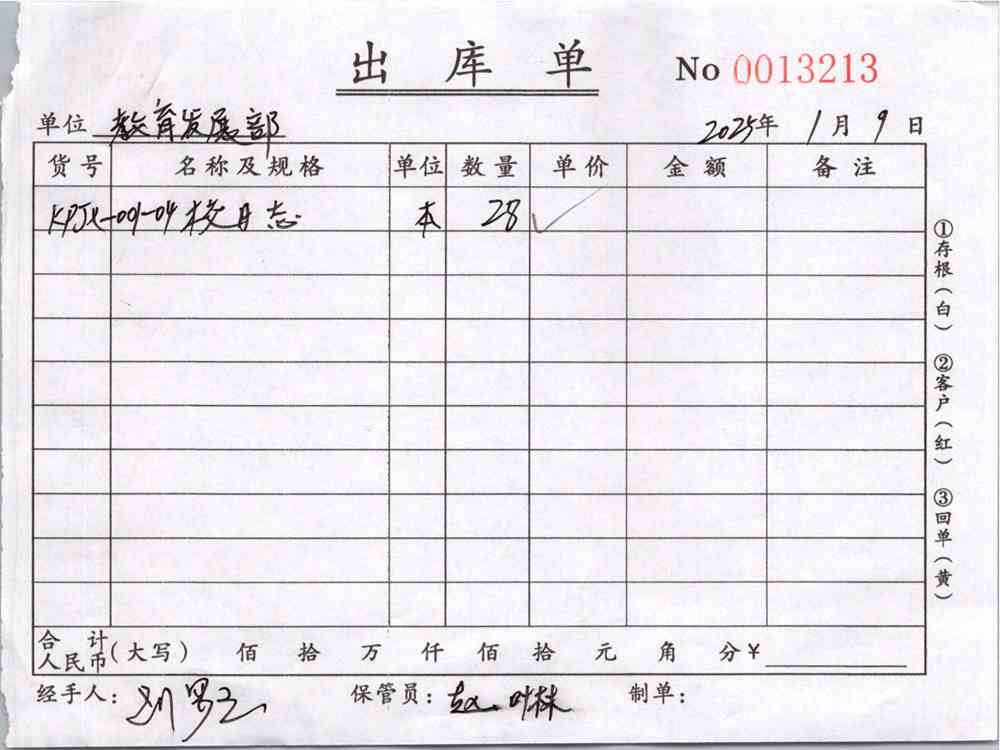 出库单
No 0013213
单位 教育发展部 2025年 1月 9日
货号 名称及规格 单位 数量 单价 金额 备注
KPJX-001-04 校日志 本 28 ✓
合计
人民币(大写) 佰 拾 万 仟 佰 拾 元 角 分¥
经手人: 保管员: 赵 叶林 制单:
①存根(白) ②客户(红) ③回单(黄)